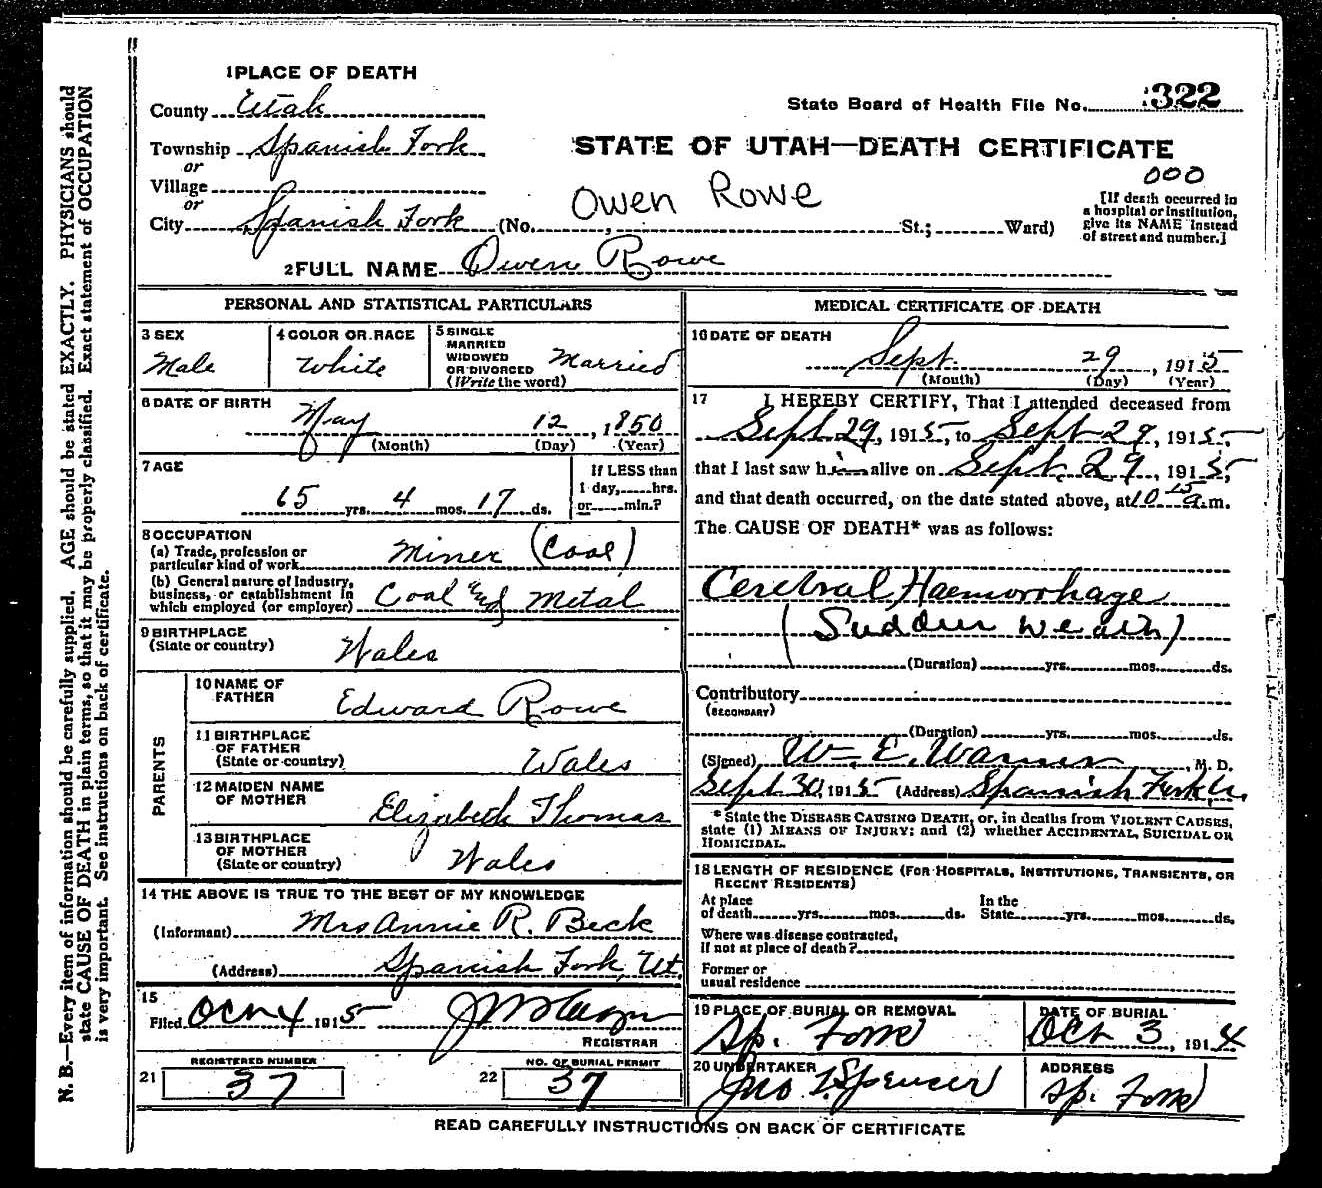 1 PLACE OF DEATH
County Utah
State Board of Health File No. 322
Township Spanish Fork
STATE OF UTAH—DEATH CERTIFICATE
or
Village
000
or
City Spanish Fork (No. , St.; Ward)
Owen Rowe
[If death occurred in
a hospital or institution,
give its NAME instead
of street and number.]
2 FULL NAME Owen Rowe
PERSONAL AND STATISTICAL PARTICULARS
3 SEX
Male
4 COLOR OR RACE
White
5 SINGLE
MARRIED
WIDOWED
OR DIVORCED
(Write the word)
Married
6 DATE OF BIRTH
May 12, 1850
(Month) (Day) (Year)
7 AGE
65 yrs. 4 mos. 17 ds.
If LESS than
1 day, hrs.
or min.?
8 OCCUPATION
(a) Trade, profession or
particular kind of work Miner (Coal)
(b) General nature of Industry,
business, or establishment in
which employed (or employer) Coal and Metal
9 BIRTHPLACE
(State or country) Wales
PARENTS
10 NAME OF
FATHER Edward Rowe
11 BIRTHPLACE
OF FATHER
(State or country) Wales
12 MAIDEN NAME
OF MOTHER Elizabeth Thomas
13 BIRTHPLACE
OF MOTHER
(State or country) Wales
14 THE ABOVE IS TRUE TO THE BEST OF MY KNOWLEDGE
(Informant) Mrs Annie R. Beck
(Address) Spanish Fork, Ut.
15
Filed Oct 4 1915
REGISTRAR
REGISTERED NUMBER
21 37
NO. OF BURIAL PERMIT
22 37
MEDICAL CERTIFICATE OF DEATH
16 DATE OF DEATH
Sept. 29, 1915
(Month) (Day) (Year)
17 I HEREBY CERTIFY, That I attended deceased from
Sept 29, 1915, to Sept 29, 1915,
that I last saw him alive on Sept. 29, 1915,
and that death occurred, on the date stated above, at 10 15 a.m.
The CAUSE OF DEATH* was as follows:
Cerebral Haemorrhage
(Sudden Death)
(Duration) yrs. mos. ds.
Contributory
(SECONDARY)
(Duration) yrs. mos. ds.
(Signed) W. E. Warner, M. D.
Sept 30, 1915 (Address) Spanish Fork, U.
* State the DISEASE CAUSING DEATH, or, in deaths from VIOLENT CAUSES,
state (1) MEANS OF INJURY; and (2) whether ACCIDENTAL, SUICIDAL OR
HOMICIDAL.
18 LENGTH OF RESIDENCE (FOR HOSPITALS, INSTITUTIONS, TRANSIENTS, OR
RECENT RESIDENTS)
At place
of death yrs. mos. ds.
In the
State yrs. mos. ds.
Where was disease contracted,
if not at place of death?
Former or
usual residence
19 PLACE OF BURIAL OR REMOVAL
Sp. Fork
DATE OF BURIAL
Oct 3, 1914
20 UNDERTAKER
Jno Spencer
ADDRESS
Sp. Fork
READ CAREFULLY INSTRUCTIONS ON BACK OF CERTIFICATE
N. B.—Every item of information should be carefully supplied. AGE should be stated EXACTLY. PHYSICIANS should
state CAUSE OF DEATH in plain terms, so that it may be properly classified. Exact statement of OCCUPATION
is very important. See instructions on back of certificate.